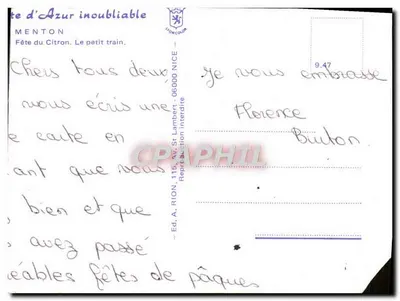 te d'Azur inoubliable
MENTON
Fête du Citron. Le petit train.
LYONCOLOR
9.47
Chers tous deux,
vous écris une
e carte en
ant que vous
bien et que
s avez passé
éables fêtes de pâques
- Ed. A. RION, 115, Av. St-Lambert - 06000 NICE -
Reproduction interdite
Je vous embrasse
Florence
CPAPHIL